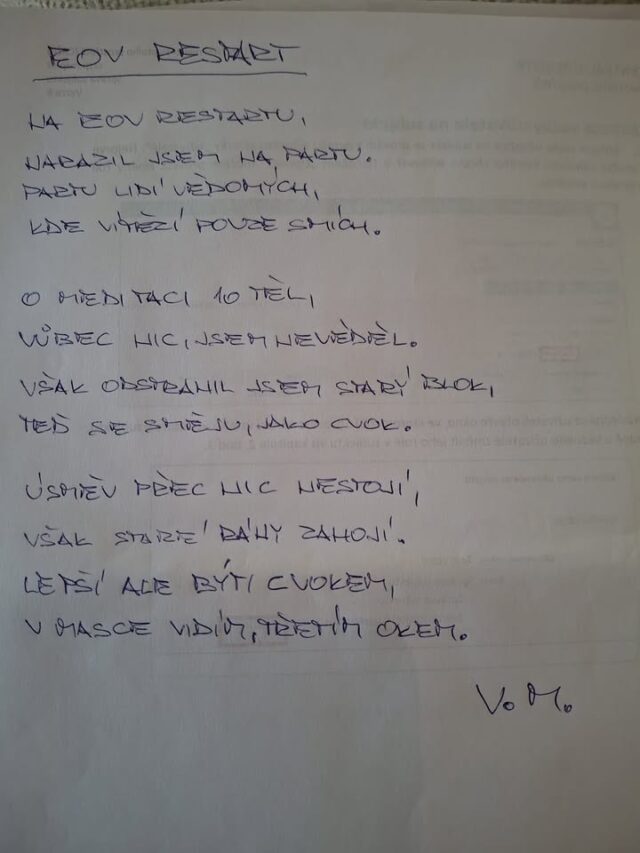 EOV RESTART
NA EOV RESTARTU,
NARAZIL JSEM NA PARTU.
PARTU LIDÍ VĚDOMÝCH,
KDE VÍTĚZÍ POUZE SMÍCH.
O MEDITACI 10 TĚL,
VŮBEC NIC, JSEM NEVĚDĚL.
VŠAK ODSTRANIL JSEM STARÝ BLOK,
TEĎ SE SMĚJU, JAKO CVOK.
ÚSMĚV PŘEC NIC NESTOJÍ,
VŠAK STARÉ RÁNY ZAHOJÍ.
LEPŠÍ ALE BÝTI CVOKEM,
V MASCE VIDÍM, TŘETÍM OKEM.
V. M.